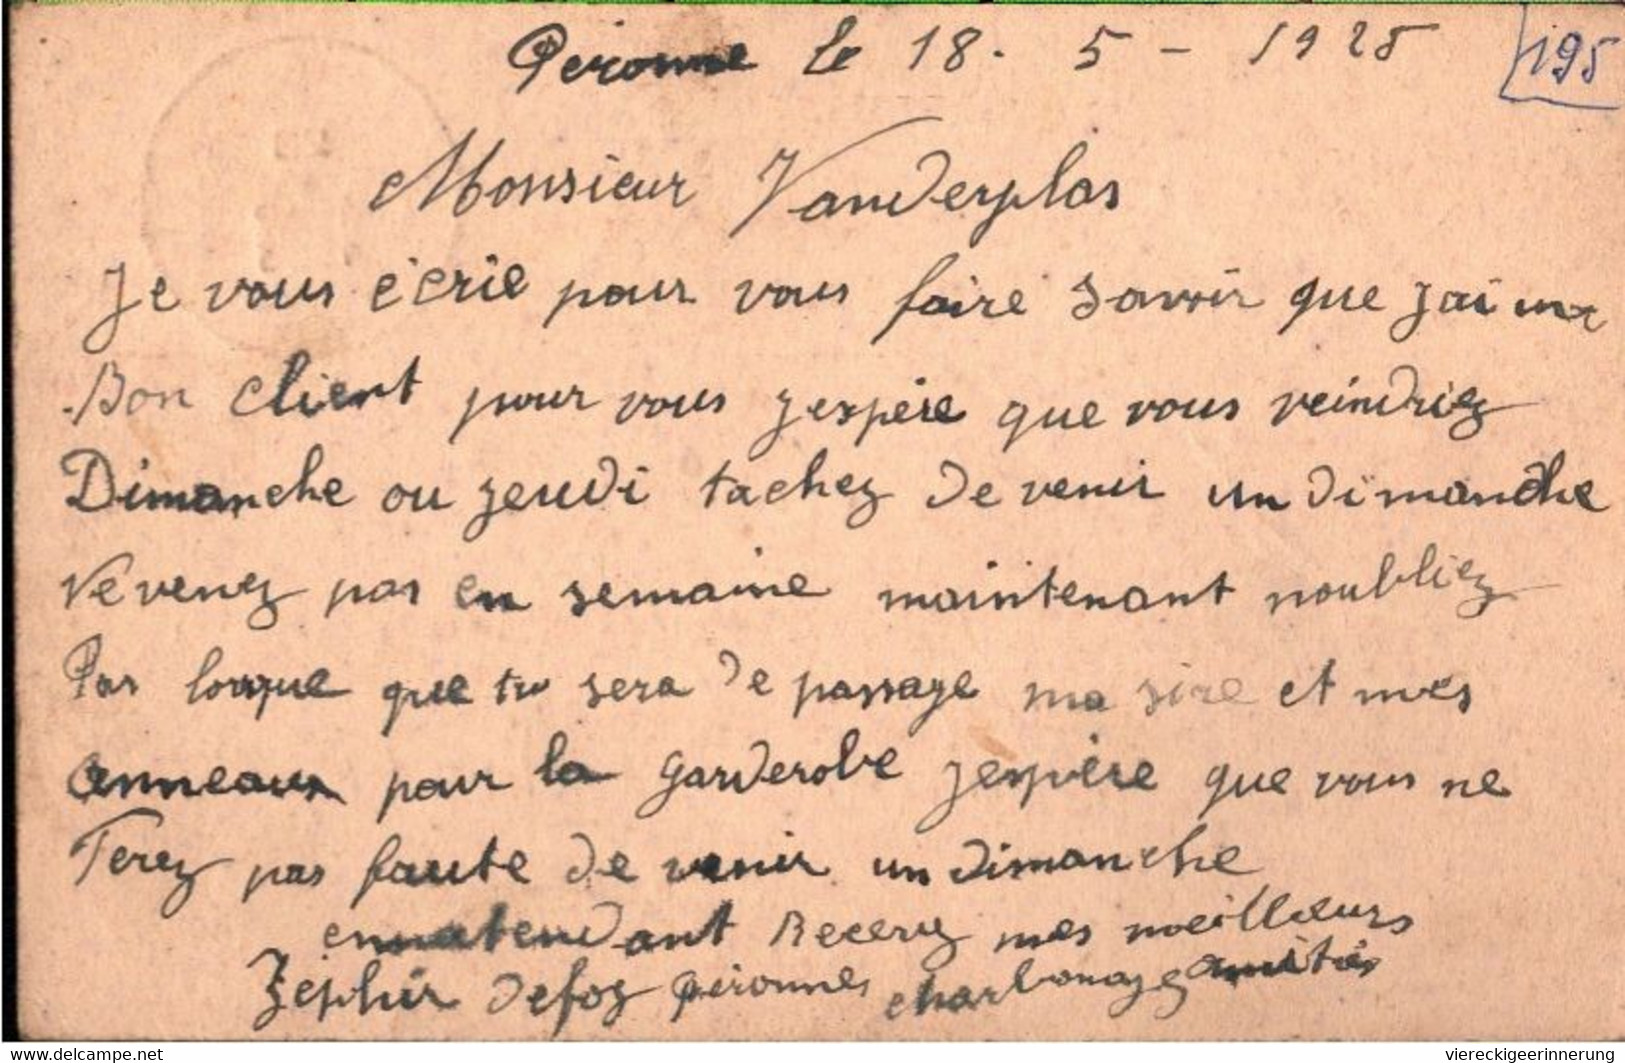 Peronne le 18. 5 - 1925
195
Monsieur Vanderplas
Je vous écrie pour vous faire savoir que jai un
Bon client pour vous jespére que vous veindriez
Dimanche ou jeudi tachez de venir un dimanche
Ne venez pas en semaine maintenant noubliez
Pas lorsque que tu sera de passage ma sire et mes
anneaux pour la garderobe jespère que vous ne
Ferez pas faute de venir un dimanche
ennatendant Recevez mes meilleurs
Zéphir Defoz Peronnes charbonage amitiés
www.delcampe.net
viereckigeerinnerung